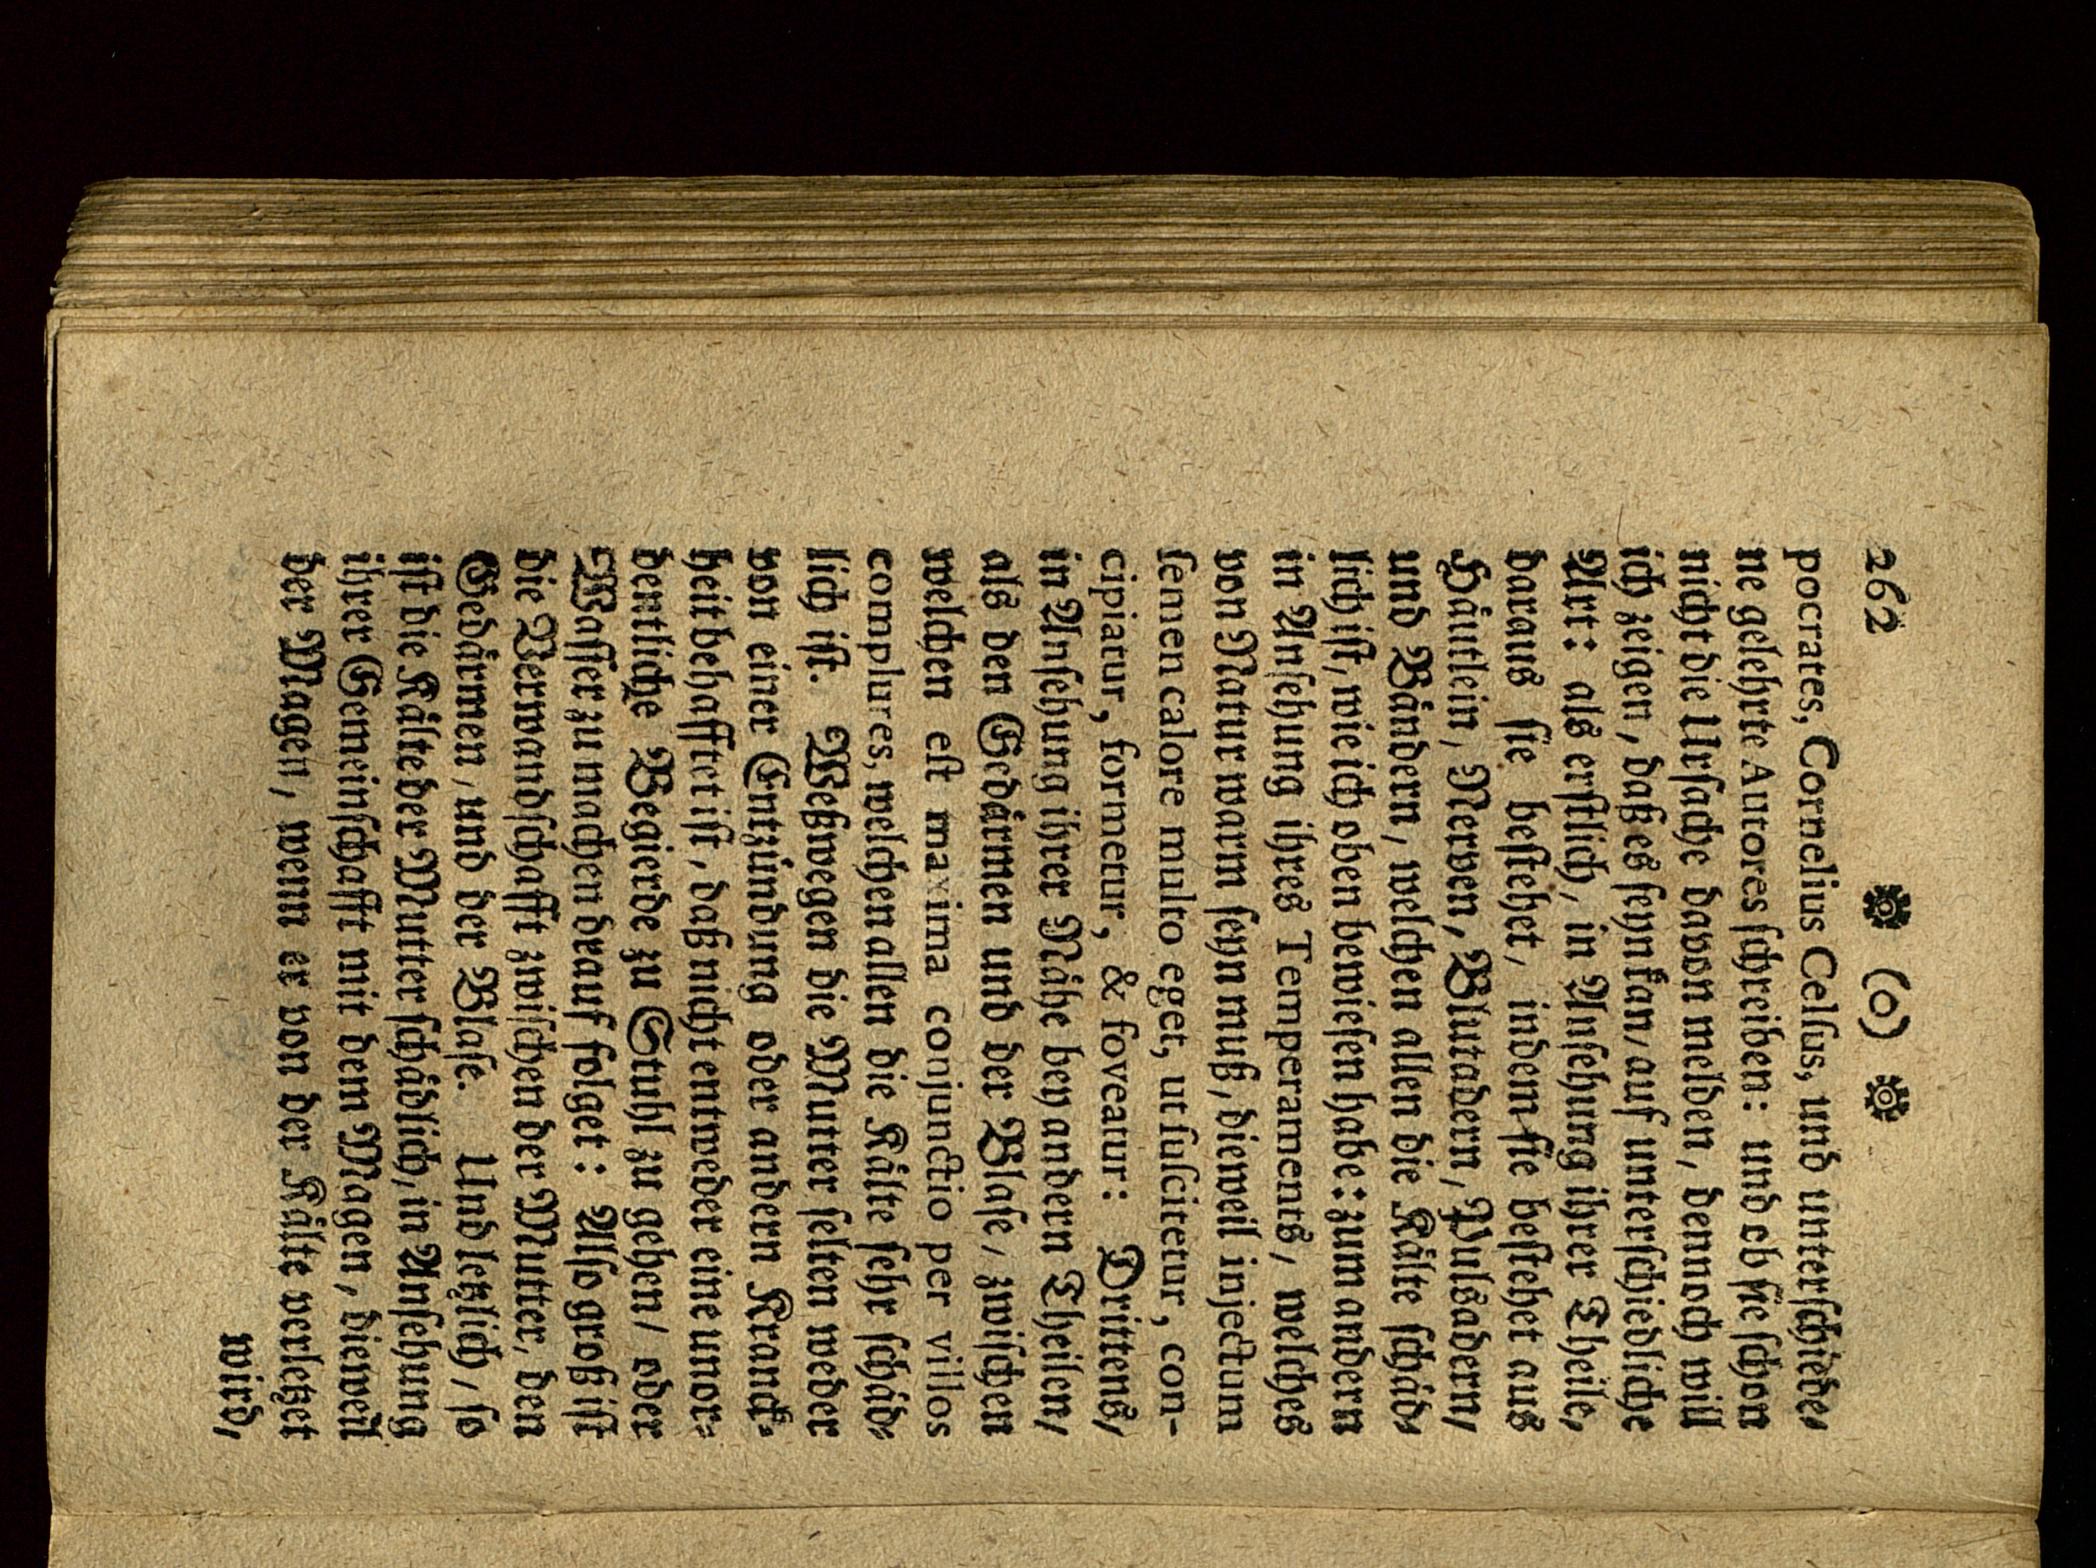 262 ❁ (o) ❁
pocrates, Cornelius Celſus, und unterſchiede,
ne gelehrte Autores ſchreiben: und ob ſie ſchon
nicht die Urſache davon melden, dennoch will
ich zeigen, daß es ſeyn kan, auf unterſchiedliche
Art: als erſtlich, in Anſehung ihrer Theile,
daraus ſie beſtehet, indem ſie beſtehet aus
Häutlein, Nerven, Blutadern, Pulßadern/
und Bändern, welchen allen die Kälte ſchäd,
lich iſt, wie ich oben bewieſen habe: zum andern
in Anſehung ihres Temperaments, welches
von Natur warm ſeyn muß, dieweil injectum
ſemen calore multo eget, ut ſuſcitetur, con-
cipiatur, formetur, & foveatur: Drittens/
in Anſehung ihrer Nähe bey andern Theilen/
als den Gedärmen und der Blaſe, zwiſchen
welchen eſt maxima conjunctio per villos
complures, welchen allen die Kälte ſehr ſchäd-
lich iſt. Weßwegen die Mutter ſelten weder
von einer Entzündung oder andern Kranck-
heit behafftet iſt, daß nicht entweder eine unor-
dentliche Begierde zu Stuhl zu gehen/ oder
Waſſer zu machen drauf folget: Alſo groß iſt
die Verwandſchafft zwiſchen der Mutter, den
Gedärmen, und der Blaſe. Und letzlich, ſo
iſt die Kälte der Mutter ſchädlich, in Anſehung
ihrer Gemeinſchafft mit dem Magen, dieweil
der Magen, wenn er von der Kälte verletzet
wird,